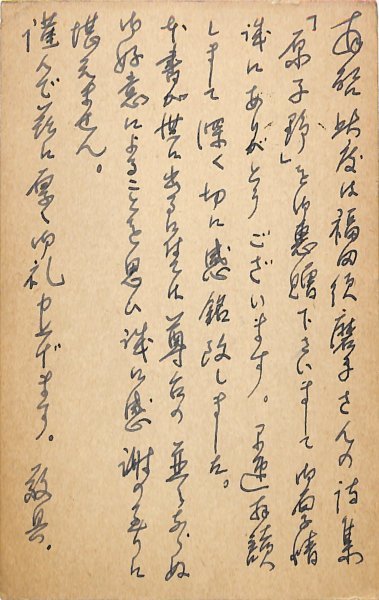 拝啓 此度は福田須磨子さんの詩集
「原子野」を御恵贈下さいまして御厚情
誠にありがとうございます。早速拝読
しまして深く切に感銘致しました。
本書が世に出るに付ては尊台の並々ならぬ
御好意によることを思ひ誠に感謝の至りに
堪えません。
謹んで茲に厚く御礼申上げます。 敬具。